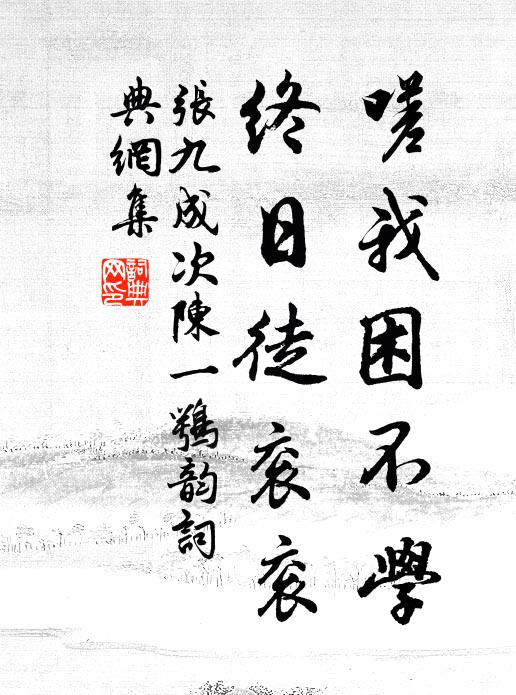 嗟我困不學
終日徒衮衮
張九成次陳一鶚韵詞
典網集
詞典網印